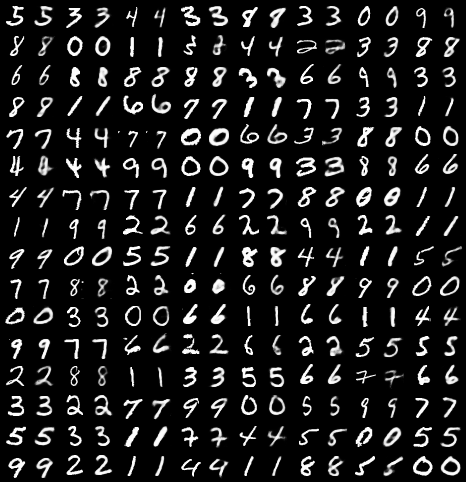 5 5 3 3 4 4 3 3 8 8 3 3 0 0 9 9
8 8 0 0 1 1 5 8 4 4 2 2 3 3 8 8
6 6 8 8 8 8 8 8 3 3 6 6 9 9 3 3
8 8 1 1 6 6 7 7 1 1 7 7 3 3 1 1
7 7 4 4 7 7 0 0 6 6 3 3 8 8 0 0
4 4 4 4 9 9 0 0 9 9 3 3 8 8 6 6
4 4 7 7 7 7 1 1 7 7 8 8 0 0 1 1
1 1 9 9 2 2 6 6 2 2 9 9 2 2 1 1
9 9 0 0 5 5 1 1 8 8 4 4 1 1 5 5
7 7 8 8 2 2 0 0 6 6 8 8 9 9 0 0
0 0 3 3 0 0 6 6 1 1 6 6 1 1 4 4
9 9 7 7 6 6 2 2 6 6 2 2 5 5 5 5
2 2 8 8 1 1 3 3 5 5 6 6 7 7 6 6
3 3 2 2 7 7 9 9 0 0 5 5 9 9 7 7
5 5 3 3 1 1 7 7 4 4 5 5 0 0 5 5
9 9 2 2 1 1 4 4 1 1 8 8 5 5 0 0